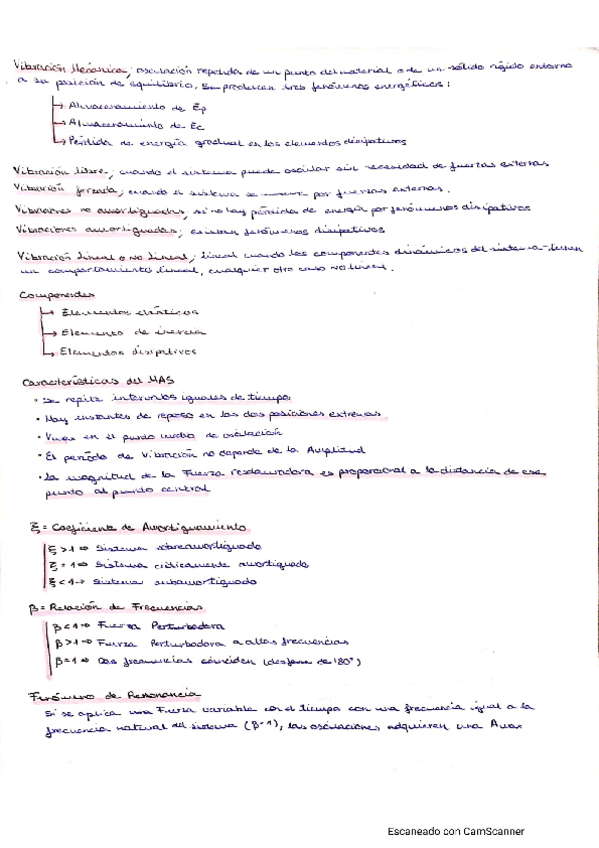 Vibración Mecánica; oscilación repetida de un punto del material o de un sólido rígido entorno
a su posición de equilibrio. Se producen tres fenómenos energéticos:
→ Almacenamiento de Ep
→ Almacenamiento de Ec
→ Pérdida de energía gradual en los elementos disipativos
Vibración libre; cuando el sistema puede oscilar sin necesidad de fuerzas externas
Vibración forzada; cuando el sistema se mueve por fuerzas externas.
Vibraciones no amortiguadas; si no hay pérdida de energía por fenómenos disipativos
Vibraciones amortiguadas; existen fenómenos disipativos
Vibración lineal o no lineal; lineal cuando los componentes dinámicos del sistema tienen
un comportamiento lineal, cualquier otro caso no lineal.
Componentes
→ Elementos elásticos
→ Elemento de inercia
→ Elementos disipativos
Características del MAS
• Se repite intervalos iguales de tiempo
• Hay instantes de reposo en las dos posiciones extremas
• Vmax en el punto medio de oscilación
• El período de vibración no depende de la Amplitud
• La magnitud de la Fuerza restauradora es proporcional a la distancia de ese
punto al punto central
ξ = Coeficiente de Amortiguamiento
ξ > 1 ⇒ Sistema sobreamortiguado
ξ = 1 ⇒ Sistema críticamente amortiguado
ξ < 1 → Sistema subamortiguado
β = Relación de Frecuencias
β < 1 ⇒ Fuerza Perturbadora
β > 1 ⇒ Fuerza Perturbadora a altas frecuencias
β = 1 ⇒ Dos frecuencias coinciden (desfase de 180°)
Fenómeno de Resonancia
Si se aplica una Fuerza variable con el tiempo con una frecuencia igual a la
frecuencia natural del sistema (β=1), las oscilaciones adquieren una Amax
Escaneado con CamScanner